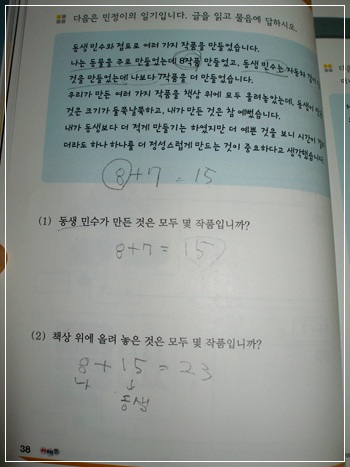 다음은 민정이의 일기입니다. 글을 읽고 물음에 답하시오.
동생 민수와 점토로 여러 가지 작품을 만들었습니다.
나는 동물을 주로 만들었는데 8작품 만들었고, 동생 민수는 자동차
것을 만들었는데 나보다 7작품을 더 만들었습니다.
우리가 만든 여러 가지 작품을 책상 위에 모두 올려놓았는데, 동생이
것은 크기가 들쭉날쭉하고, 내가 만든 것은 참 예뻤습니다.
내가 동생보다 더 적게 만들기는 하였지만 더 예쁜 것을 보니 시간이
더라도 하나 하나를 더 정성스럽게 만드는 것이 중요하다고 생각했습니다.
8+7 = 15
(1) 동생 민수가 만든 것은 모두 몇 작품입니까?
8+7 = 15
(2) 책상 위에 올려 놓은 것은 모두 몇 작품입니까?
8 + 15 = 23
나 ↓
동생
38